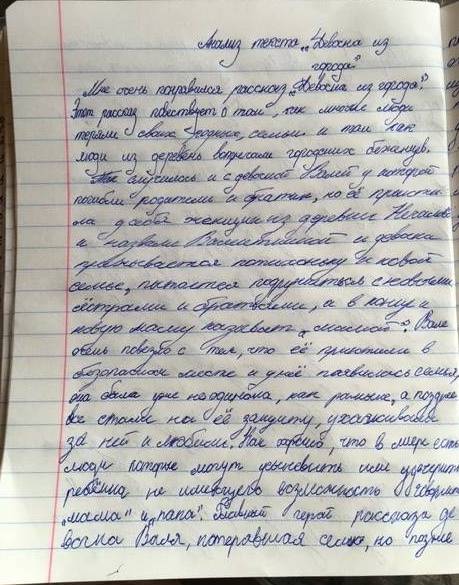 Анализ текста „Девочка из
города"
Мне очень понравился рассказ „Девочка из города".
Этот рассказ повествует о том, как многие люди
теряли своих родных, семьи и том как
люди из деревень встречали городских беженцев.
Так случилось и с девочкой Валей у которой
погибли родители и братик, но её приюти
ла у себя женщина из деревни Нечаево
и назвала Валентинкой и девочка
привыкается потихоньку к новой
семье, пытается подружиться с новыми
сёстрами и братьями, а в концу и
новую маму называет „мамой". Вале
очень повезло с тем, что её приютили в
безопасном месте и у неё появилась семья,
она была уже не одинока, как раньше, а позднее
все стали на её защиту, ухаживали
за ней и любили. Как хорошо, что в мире есть
люди которые могут усыновить или удочерить
ребёнка не имеющего возможность говорить
„мама" и „папа". Главный герой рассказа де
вочка Валя, потерявшая семью, но позже